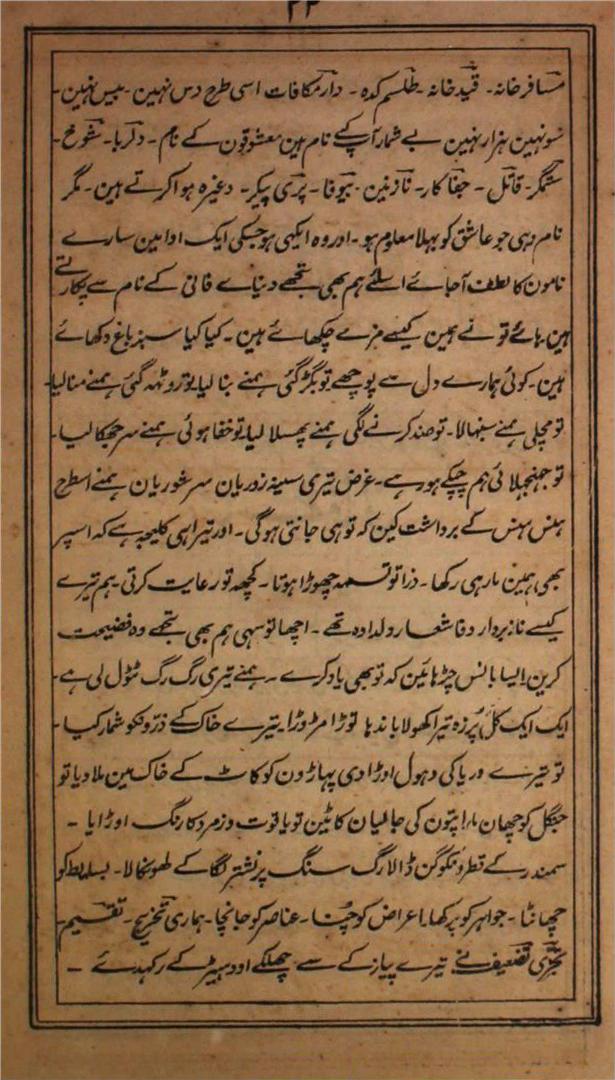 ۲۲
مسافرخانہ۔ قیدخانہ۔ طلسم کدہ۔ دار مکافات اسی طرح دس نہین۔ بیس نہین۔
سو نہین ہزار نہین بے شمار آپ کے نام ہین معشوقون کے نام۔ دلربا۔ شوخ۔
ستمگر۔ قاتل۔ جفا کار۔ نازنین۔ بیوفا۔ پری پیکر۔ وغیرہ ہوا کرتے ہین۔ مگر
نام وہی جو عاشق کو بہلا معلوم ہو۔ اور وہ ایکہی ہو جسکی ایک ادا مین سارے
نامون کا لطف آجائے اسلئے ہم بھی تجھے دنیاے فانی کے نام سے پکارتے
ہین ہائے تو نے ہمین کیسے مزے چکھائے ہین۔ کیا کیا سبز باغ دکھائے
ہین۔ کوئی ہمارے دل سے پوچھے تو بگڑ گئی ہمنے بنا لیا تو روٹہہ گئی ہمنے منا لیا
تو مچلی ہمنے سنبہالا۔ تو ضد کرنے لگی ہمنے پھسلا لیا۔ تو خفا ہوئی ہمنے سر جھکا لیا۔
تو جہنجہلائی ہم چپکے ہو رہے۔ غرض تیری سینہ زوریان سر شوریان ہمنے اسطرح
ہنس ہنس کے برداشت کین کہ تو ہی جانتی ہوگی۔ اور تیرا ہی کلیجہ ہے کہ اسپر
بھی ہمین مار ہی رکھا۔ ذرا تو تسمہ چھوڑا ہوتا۔ کچھہ تو رعایت کرتی ہم تیرے
کیسے نازبردار وفا شعار ولدادہ تھے۔ اچھا تو سہی ہم بھی تجھے وہ فضیحت
کرین ایسا بانس چڑہائین کہ تو بھی یاد کرے۔ ہمنے تیری رگ رگ ٹٹول لی ہے۔
ایک ایک کل پرزہ تیرا کھولا باندہا توڑا مڑوڑا۔ تیرے خاک کے ذرونکو شمار کیا۔
تو تیرے دریا کی دہول اوڑا دی پہاڑون کو کاٹ کے خاک مین ملا دیا تو
جنگل کو چھان مارا پتون کی جالیان کاٹین تو یاقوت و زمرد کا رنگ اوڑایا۔
سمندر کے قطرونکو گن ڈالا رگ سنگ پر نشتر لگا کے لھو نکالا۔ بسایط کو
چھانٹا۔ جواہر کو پرکھا۔ اعراض کو چنا۔ عناصر کو جانچا۔ ہماری تخریج۔ تقسیم۔
تجزی تضعیف نے تیرے پیاز کے سے چھلکے اودہیڑ کے رکہدئے۔